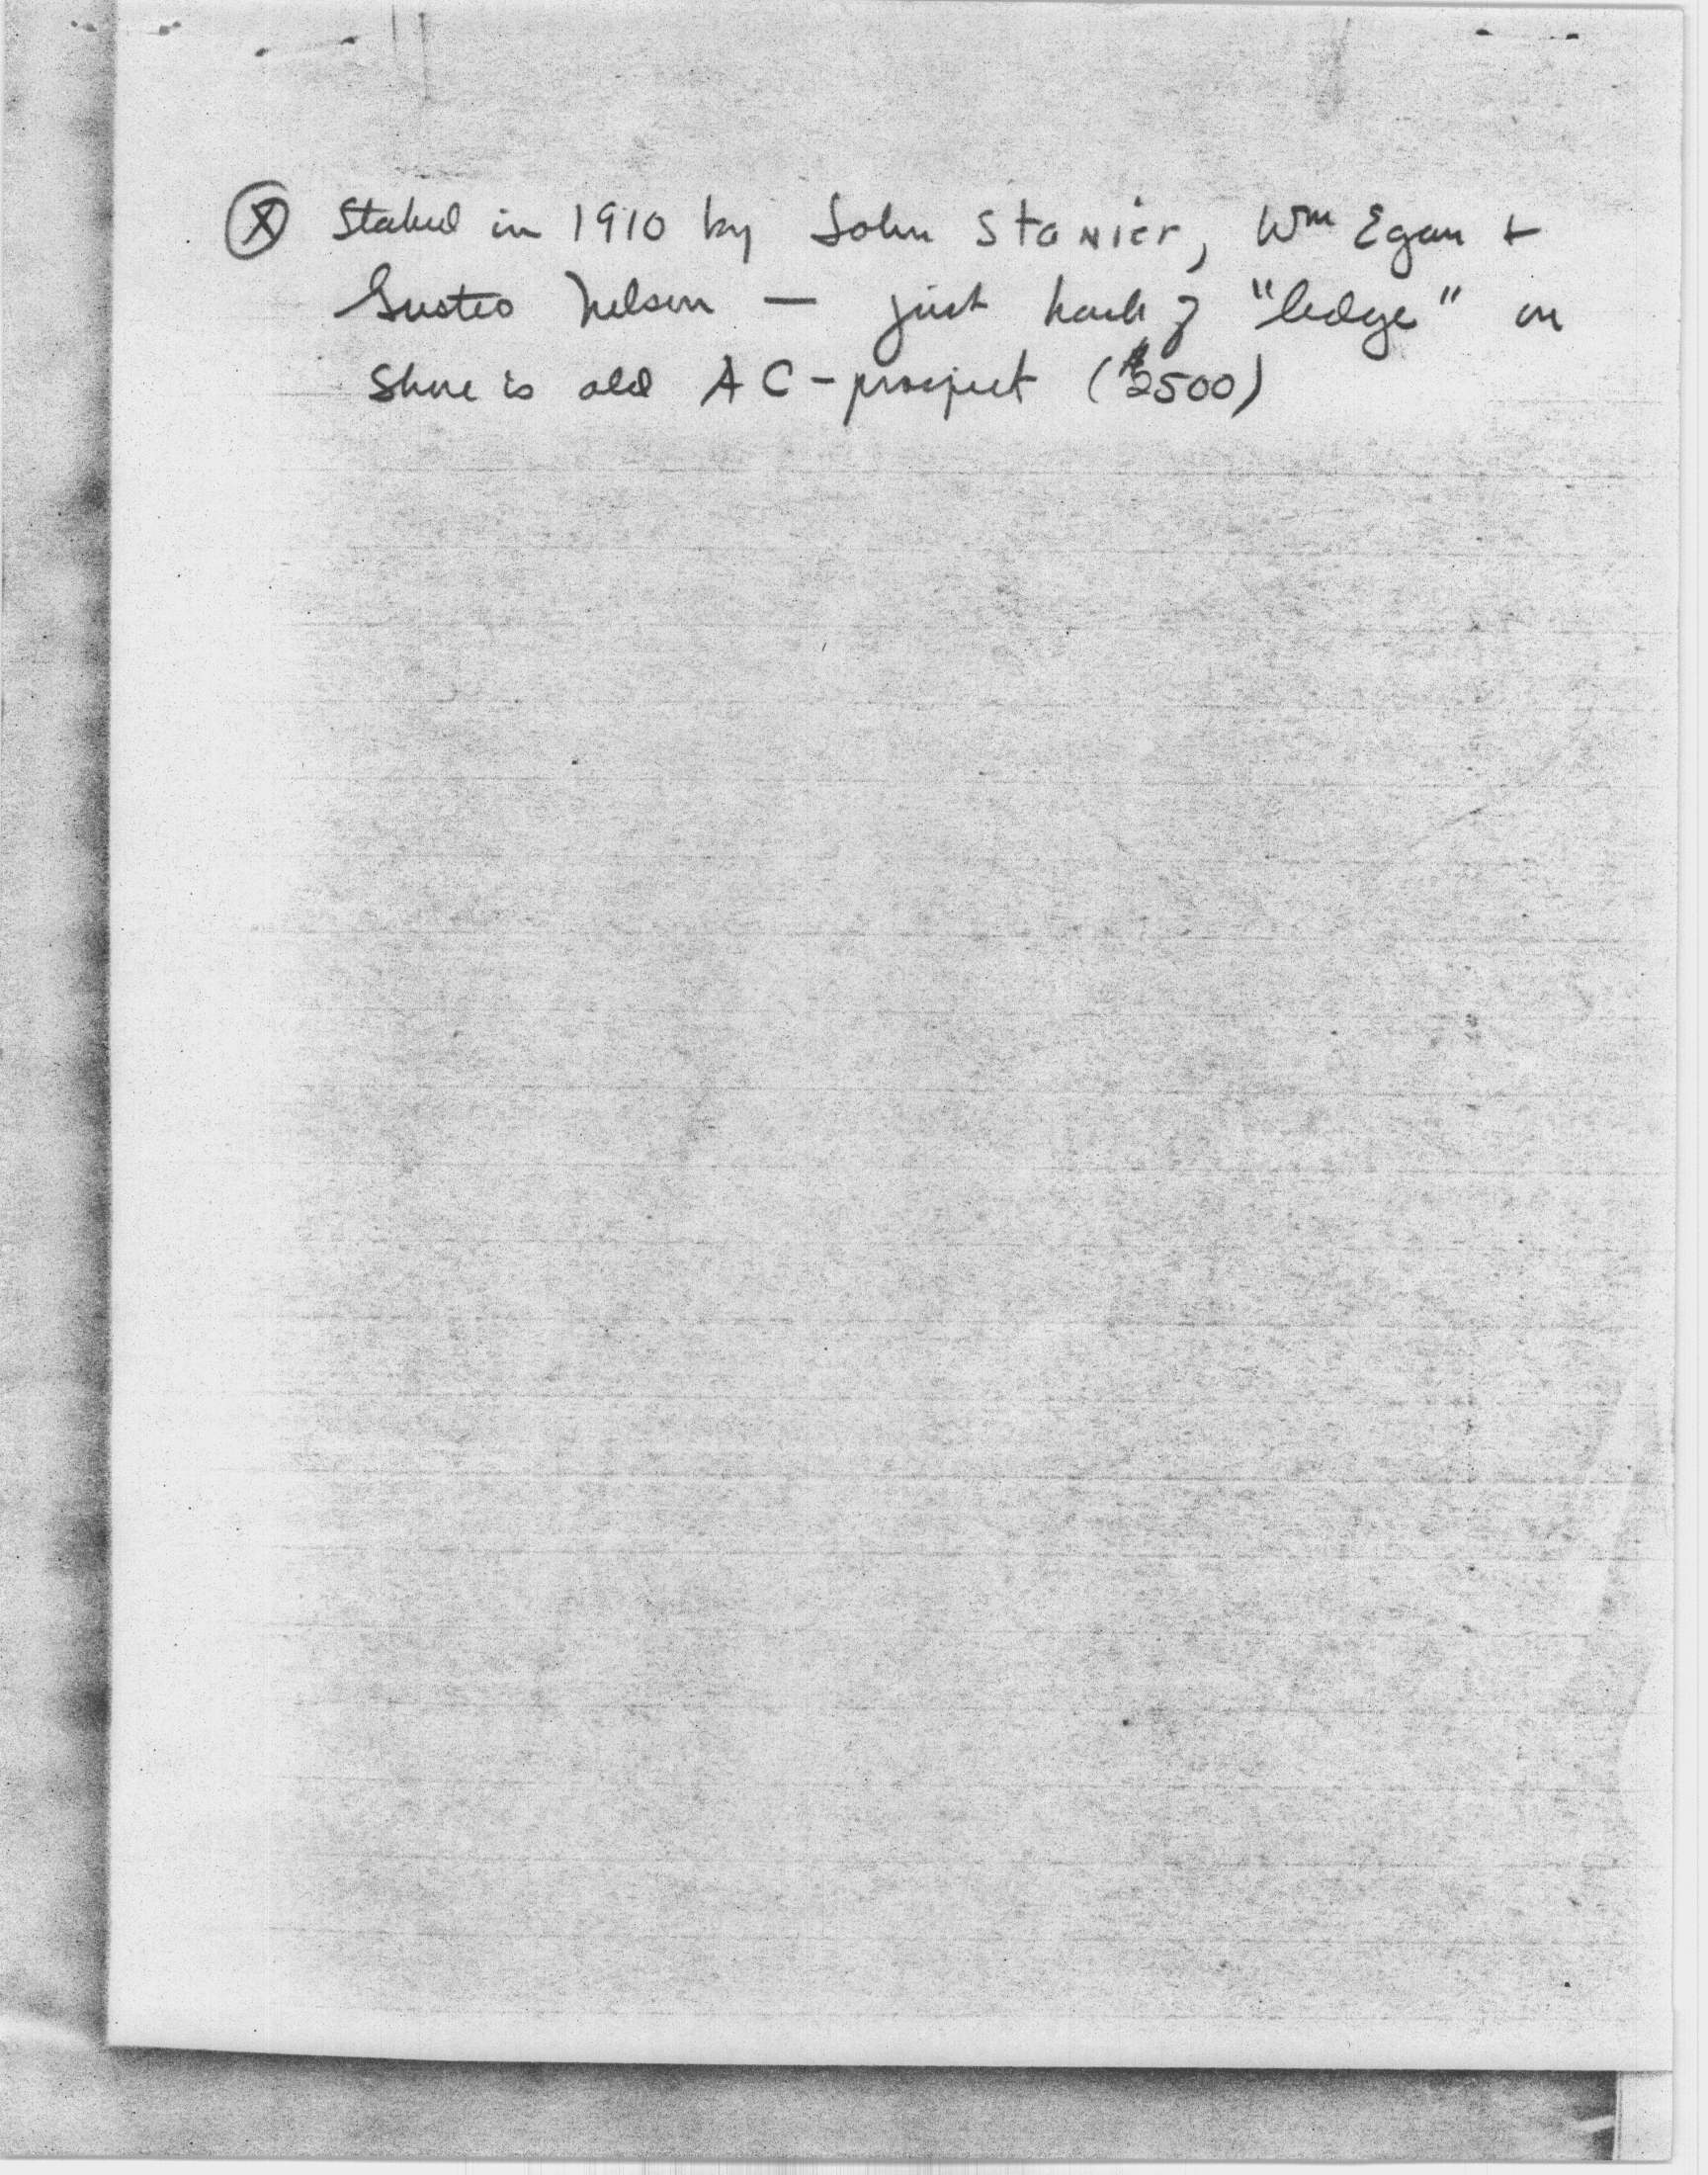 Ⓧ Staked in 1910 by John Stanier, Wm Egan +
Nelson — just back of "ledge" on
Shore is old AC-prospect ($2500)